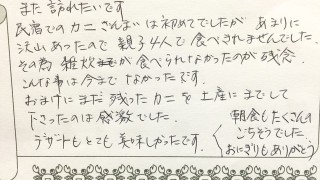 また 訪れたいです
民宿でのカニざんまいは初めてでしたが あまりに
沢山あったので 親子4人で食べきれませんでした。
その為 雑炊が食べられなかったのが残念。
こんな事は今までなかったです。
おまけにまだ残ったカニを土産にまでして
下さったのは感激でした。
デザートもとても美味しかったです。
朝食もたくさんの
ごちそうでした。
おにぎりもありがとう